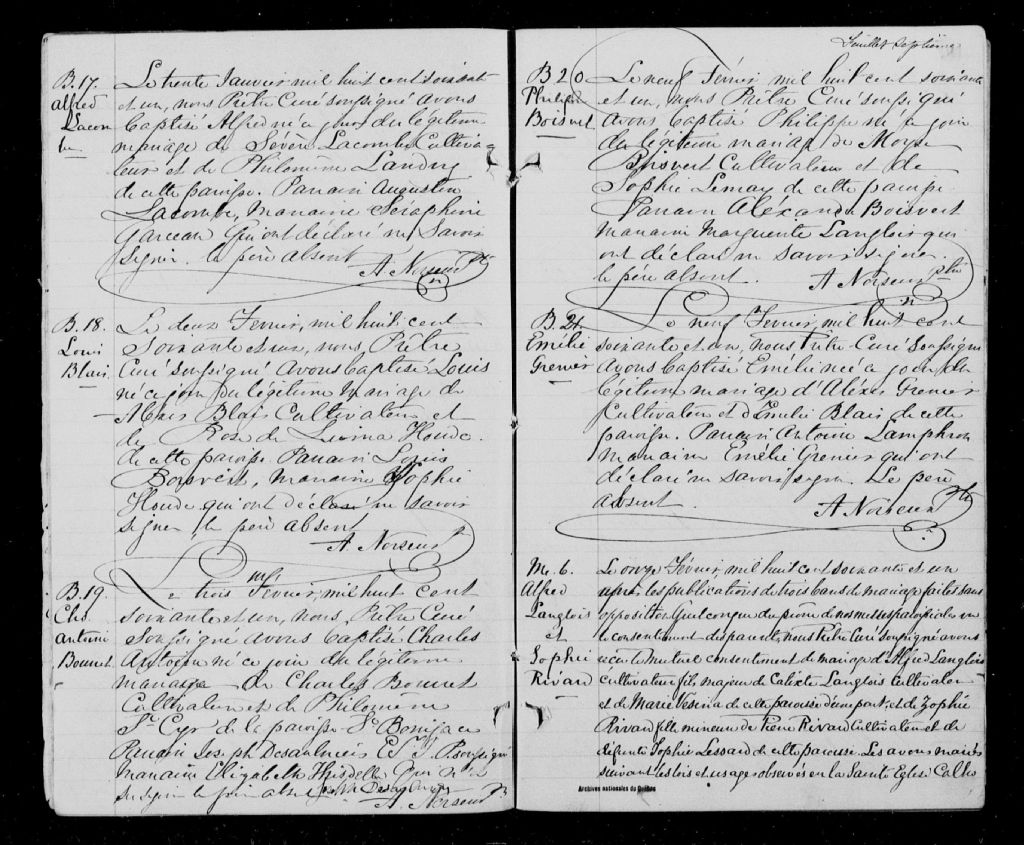 B. 17.
alfred
Lacom
be
Le trente Janvier mil huit cent soixante
et un, nous Prêtre Curé soussigné avons
baptisé Alfred né ce jour du légitime
mariage de Sévère Lacombe Cultiva
teur et de Philomène Landry
de cette paroisse. Parrain Augustin
Lacombe, Marraine Séraphine
Garceau qui ont déclaré ne savoir
signer. le père absent
A Noiseux Ptre
B. 18.
Louis
Blais
Le deux Fevrier, mil huit cent
soixante et un, nous, Prêtre
Curé soussigné avons baptisé Louis
né ce jour du légitime mariage de
Blais Cultivateur et
de Rose de Houde
de cette paroisse. Parrain Louis
Boisvert, marraine Sophie
Houde qui ont déclaré ne savoir
signer, le père absent
A Noiseux Pt
B. 19.
Chs
antoine
Bonnet
Le trois Fevrier, mil huit cent
soixante et un, nous, Prêtre Curé
soussigné avons baptisé Charles
Antoine né ce jour du légitime
mariage de Charles Bonnet
Cultivateur et de Philomène
St Cyr de la paroisse St Boniface
Parrain Joseph Desaulniers E. P. soussigné
marraine Elizabeth qui n'a
su signer le père absent
A Noiseux P
Feuillet septième
B 20
Philippe
Boisvert
Le neuf Février mil huit cent soixante
et un, nous Prêtre Curé soussigné
avons baptisé Philippe né ce jour
du légitime mariage de Moyse
Boisvert Cultivateur et de
Sophie Lemay de cette paroisse
Parrain Aléxandre Boisvert
marraine Marguerite Langlois qui
ont déclaré ne savoir signer.
le père absent.
A Noiseux ptre
B. 21.
Emélie
Grenier
Le neuf Fevrier, mil huit cent
soixante et un, nous Prêtre Curé soussigné
avons baptisé Emélie née ce jour du
légitime mariage d'Aléxis Grenier
Cultivateur et d'Emélie Blais de cette
paroisse. Parrain Antoine Lamphron
marraine Emélie Grenier qui ont
déclaré ne savoir signer. Le père
absent.
A Noiseux Ptre
M. 6.
Alfred
Langlois
et
Sophie
Rivard
Le onze Février, mil huit cent soixante et un
après les publications de trois bans de mariage faites sans
opposition quelconque du prône de nos messes paroissiales vu
le consentement des parents, nous Prêtre Curé soussigné avons
reçu le mutuel consentement de mariage d'Alfred Langlois
cultivateur fils majeur de Calixte Langlois Cultivateur
et de Marie de cette paroisse d'une part; et de Zophie
Rivard fille mineure de Pierre Rivard Cultivateur et de
défunte Sophie Lessard de cette paroisse. Les avons mariés
suivant les lois et usages observés en la Sainte Eglise Catho
Archives nationales du Québec